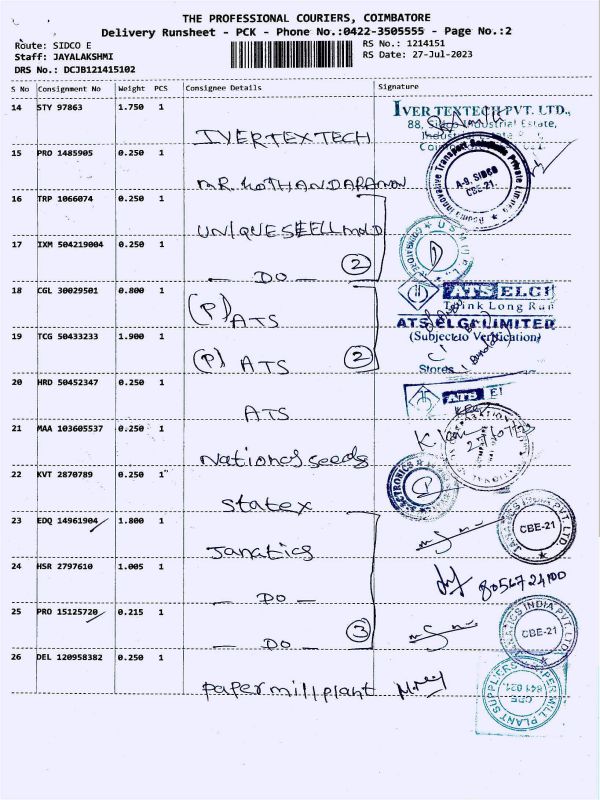 THE PROFESSIONAL COURIERS, COIMBATORE
Delivery Runsheet - PCK - Phone No.:0422-3505555 - Page No.:2
Route: SIDCO E
RS No.: 1214151
Staff: JAYALAKSHMI
RS Date: 27-Jul-2023
DRS No.: DCJB121415102
S No Consignment No Weight PCS Consignee Details Signature
14 STY 97863 1.750 1
IVERTEXTECH
IVER TEXTECH PVT. LTD.,
88, Sidco Industrial Estate,
15 PRO 1485905 0.250 1
MR. KOTHANDARAMAN
A-9, SIDCO
CBE-21.
16 TRP 1066074 0.250 1
UNIQUESHELLMOLD
17 IXM 504219004 0.250 1
- DO - 2
18 CGL 30029501 0.800 1
(P) ATS
ATS ELGI
Think Long Run
ATS ELGI LIMITED
(Subject to Verification)
Stores
19 TCG 50433233 1.900 1
(P) ATS 2
20 HRD 50452347 0.250 1
ATS
ATS El
21 MAA 103605537 0.250 1
National seeds
22 KVT 2870789 0.250 1
Statex
23 EDQ 14961904 1.800 1
Janatics
CBE-21
24 HSR 2797610 1.005 1
- DO -
8056724100
25 PRO 15125720 0.215 1
- DO - 3
JANATICS INDIA PVT. LTD.
CBE-21
26 DEL 120958382 0.250 1
papermillplant
PAPER MILL PLANT SUPPLIERS
CBE
641 021